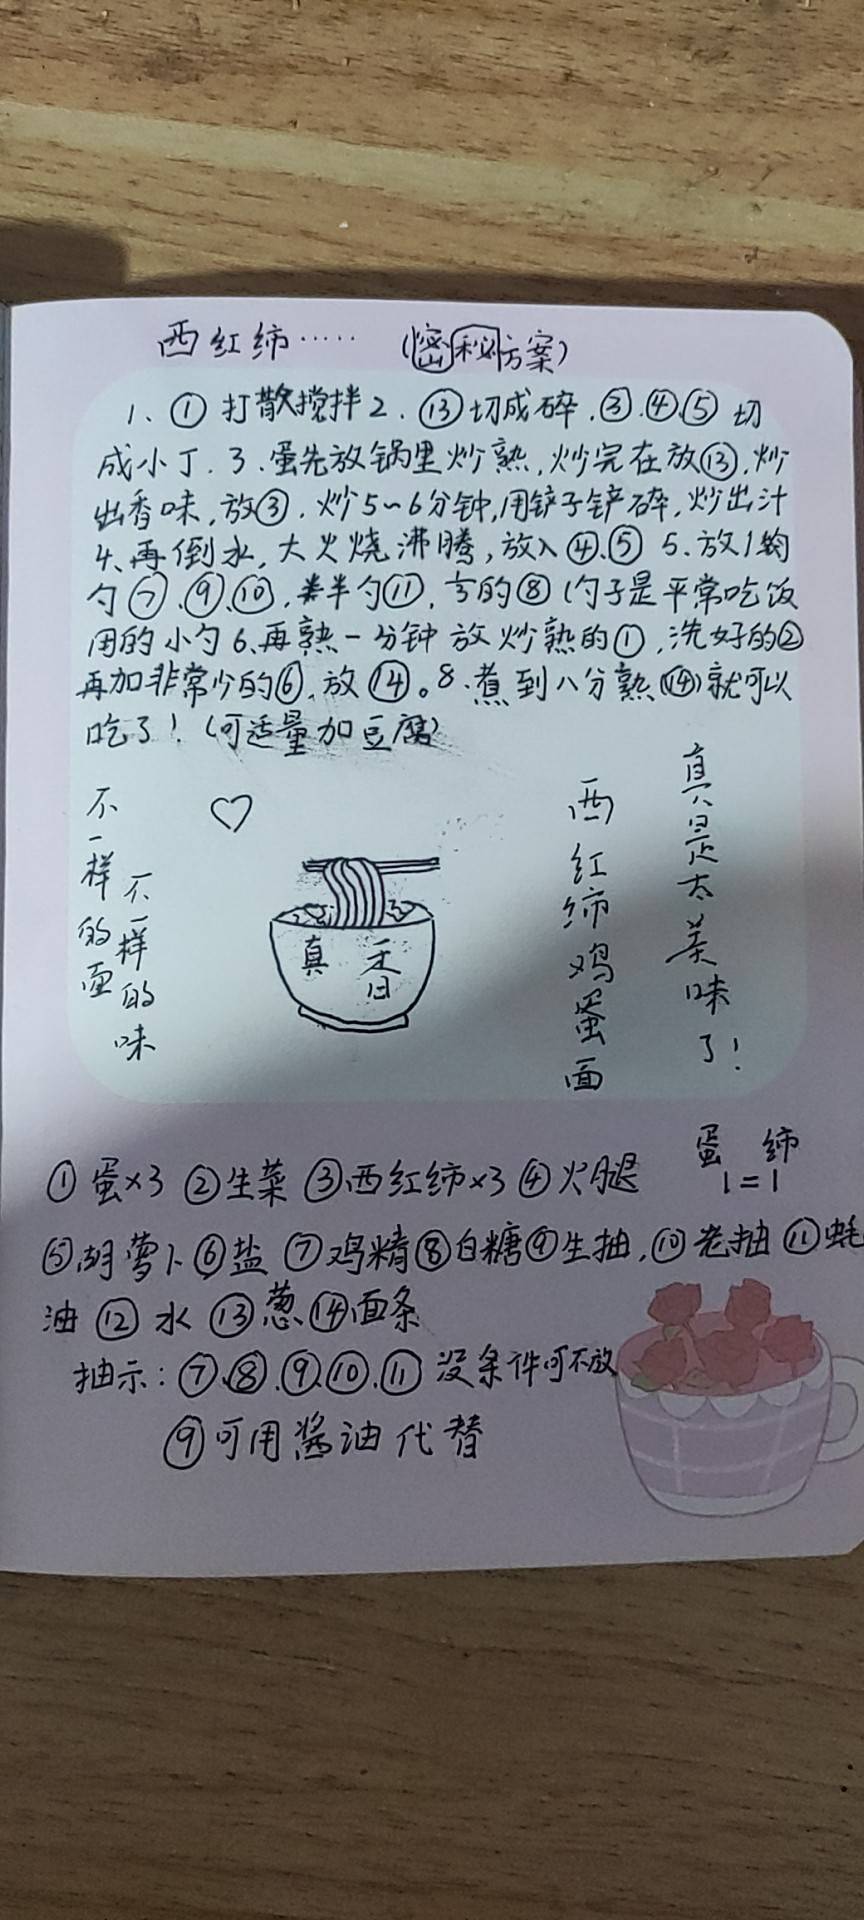 西红柿…… (密秘方案)
1、① 打散搅拌 2. ⑬切成碎.③.④.⑤ 切
成小丁. 3.蛋先放锅里炒熟,炒完在放⑬,炒
出香味,放③. 炒5~6分钟,用铲子铲碎,炒出汁
4、再倒水,大火烧沸腾,放入④.⑤ 5.放1
勺⑦.⑨.⑩,半勺⑪,的⑧(勺子是平常吃饭
用的小勺 6、再熟一分钟 放炒熟的①,洗好的②
再加非常少的⑥.放⑭。8.煮到八分熟(⑭)就可以
吃了!(可适量加豆腐)
不一样的面
不一样的味
♡
真香
西红柿鸡蛋面
真是太美味了!
蛋 柿
1=1
① 蛋×3 ②生菜 ③西红柿×3 ④火腿
⑤胡萝卜⑥盐 ⑦鸡精⑧白糖⑨生抽,⑩老抽 ⑪蚝
油 ⑫ 水 ⑬葱⑭面条
抽示:⑦.⑧.⑨.⑩.⑪ 没条件可不放
⑨可用酱油代替